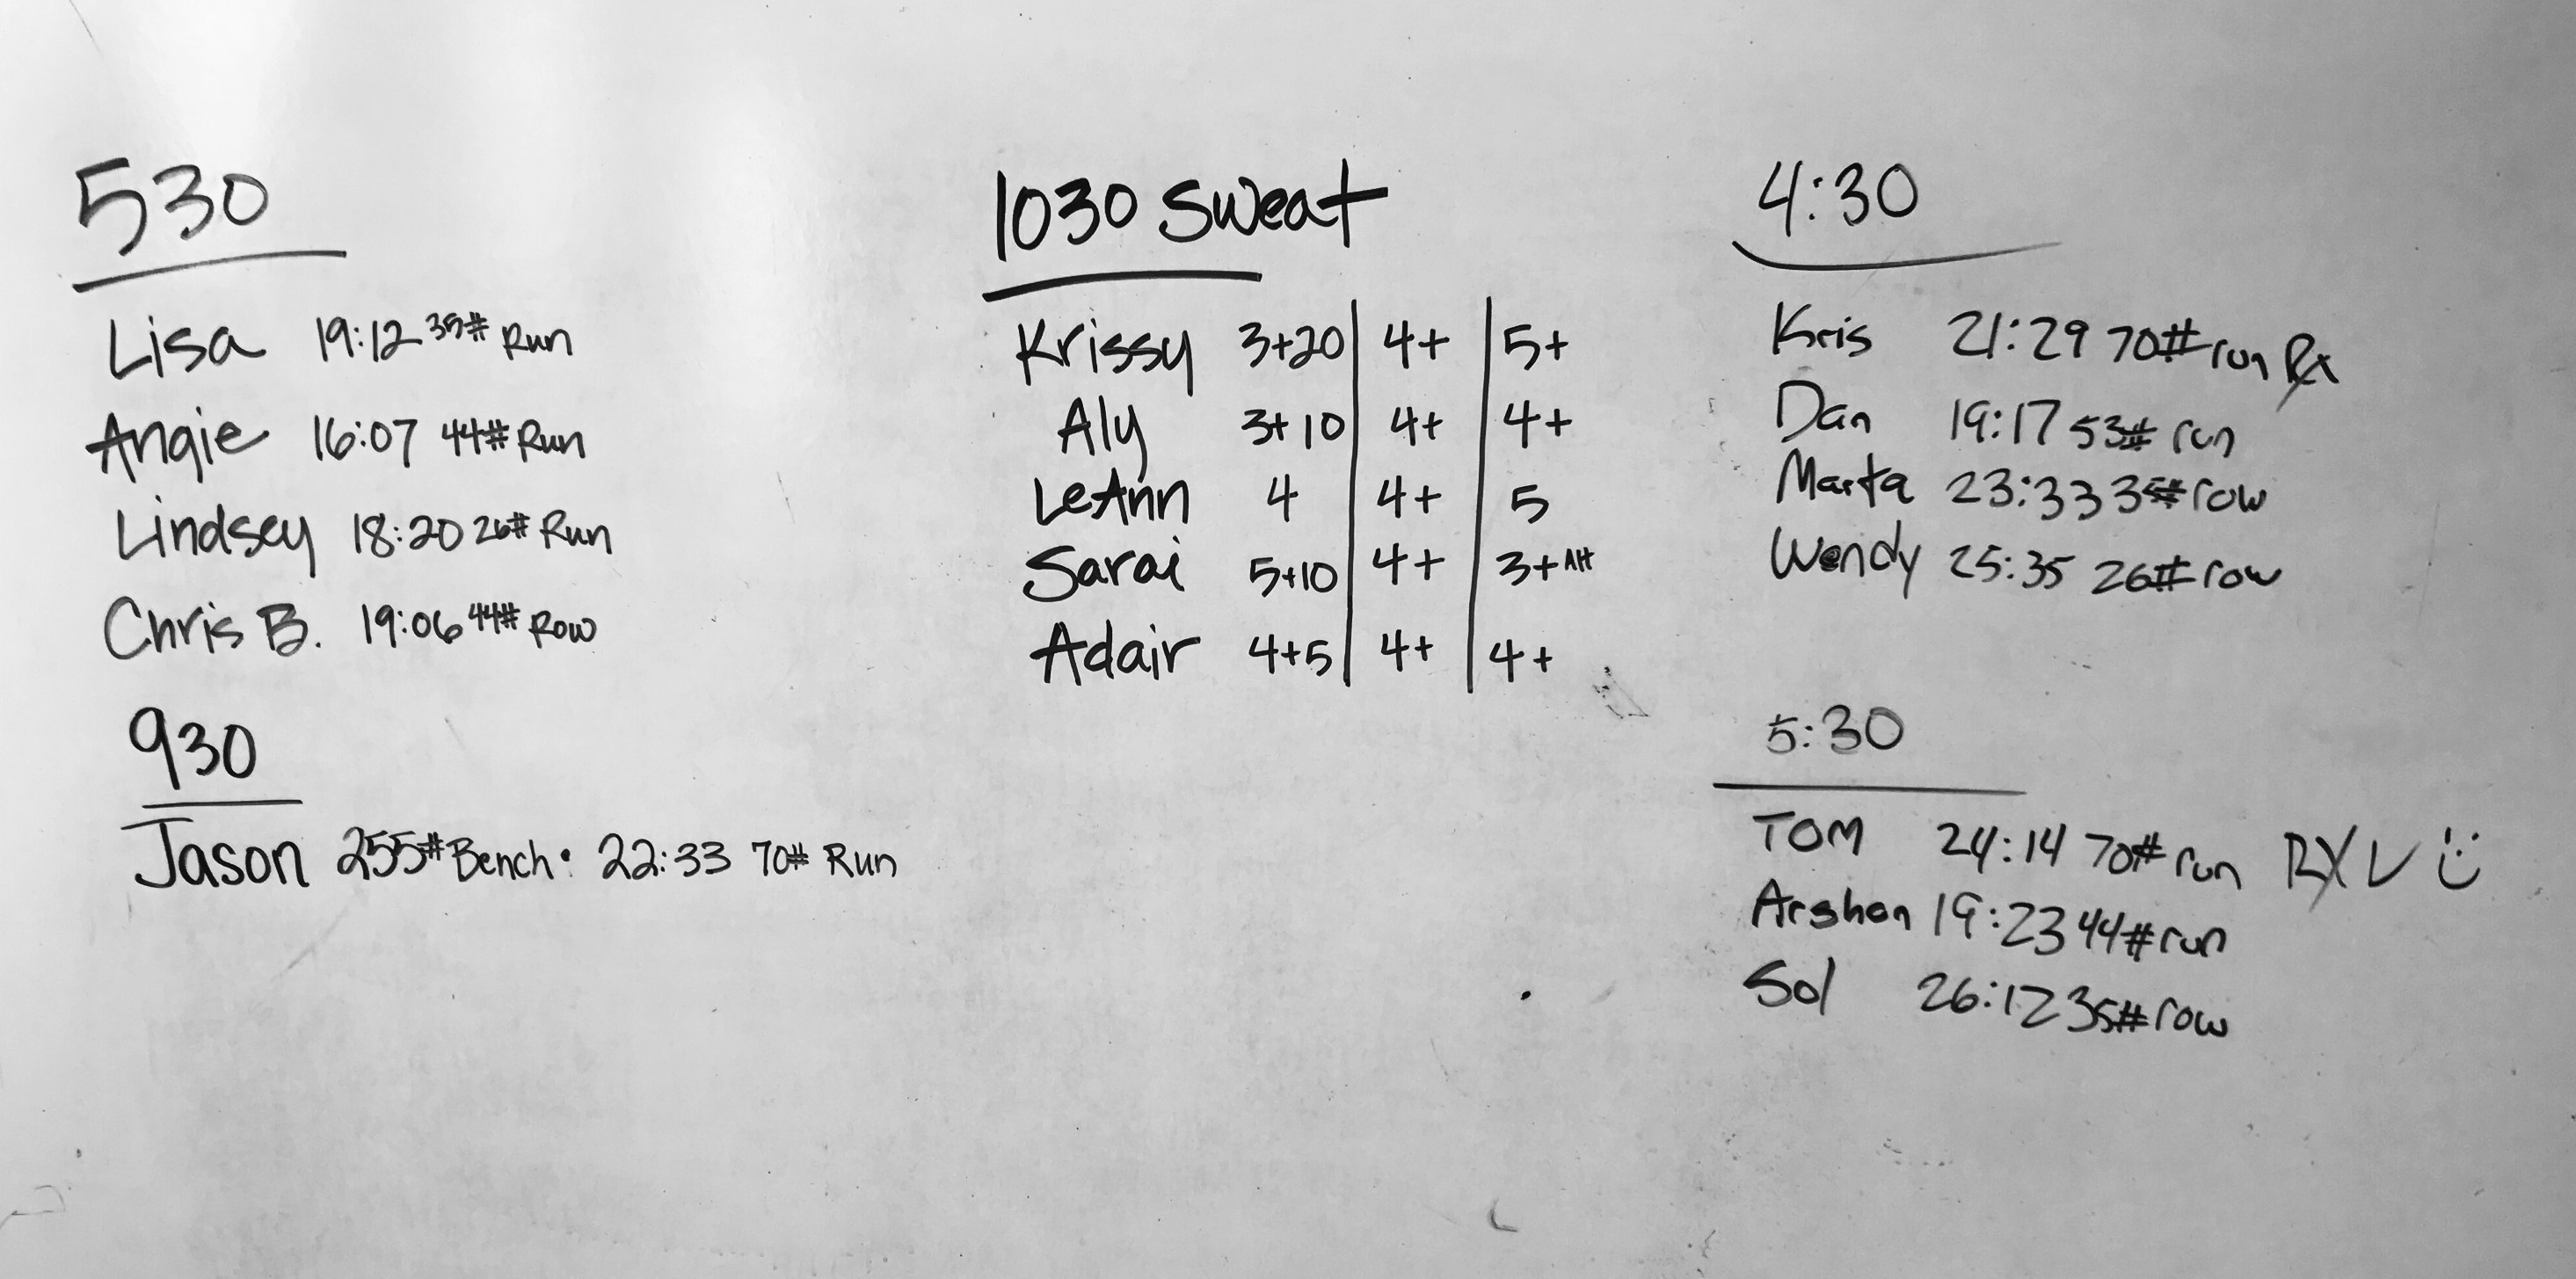 530
Lisa 19:12 35# Run
Angie 16:07 44# Run
Lindsey 18:20 26# Run
Chris B. 19:06 44# Row
930
Jason 255# Bench · 22:33 70# Run
1030 Sweat
Krissy 3+20 | 4+ | 5+
Aly 3+10 | 4+ | 4+
LeAnn 4 | 4+ | 5
Sarai 5+10 | 4+ | 3+ AH
Adair 4+5 | 4+ | 4+
4:30
Kris 21:29 70# run Rx
Dan 19:17 53# run
Marta 23:33 35# row
Wendy 25:35 26# row
5:30
TOM 24:14 70# run RX ✓ :)
Arshan 19:23 44# run
Sol 26:12 35# row